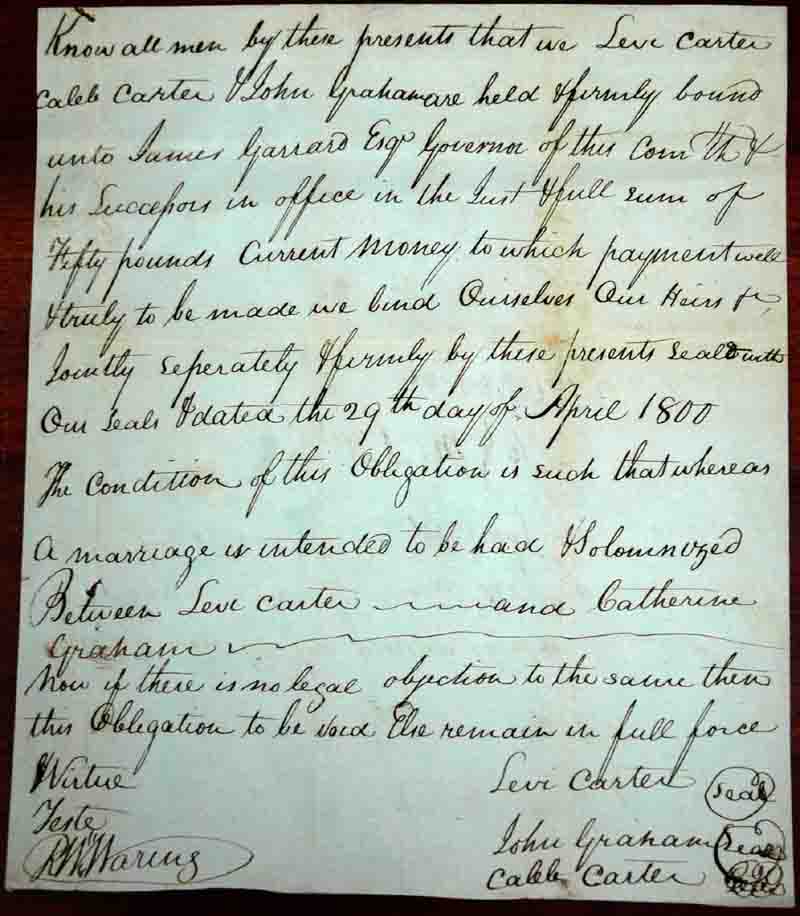 Know all men by these presents that we Levi Carter
Caleb Carter & John Graham are held & firmly bound
unto James Garrard Esqr Governor of this Com Th &
his Successors in office in the Just & full sum of
Fifty pounds Current Money to which payment well
& truly to be made we bind Ourselves Our Heirs &c
Jointly Seperately & firmly by these presents Seald with
Our Seals & dated the 29th day of April 1800
The Condition of this Obligation is such that whereas
A marriage is intended to be had & Solomnized
Between Levi Carter and Catherine
Graham
Now if there is no legal objection to the same then
this Obligation to be void Else remain in full force
& Virtue Levi Carter Seal
Teste
John Graham Seal
R W Waring
Caleb Carter Seal